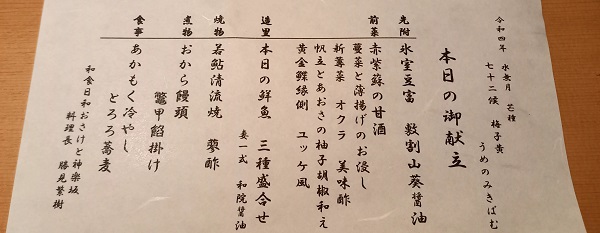 令和四年　水無月　芒種
七十二候　梅子黄
うめのみきばむ
本日の御献立
先附　氷室豆富　数割山葵醤油
前菜　赤紫蘇の甘酒
蔓菜と薄揚げのお浸し
新蓴菜　オクラ　美味酢
帆立とあおさの柚子胡椒和え
黄金鰈縁側　ユッケ風
造里　本日の鮮魚　三種盛合せ
妻一式　和院醤油
焼物　若鮎清流焼　蓼酢
煮物　おから饅頭
鼈甲餡掛け
食事　あかもく冷やし
とろろ蕎麦
和食日和おさけと神楽坂
料理長　勝見繁樹